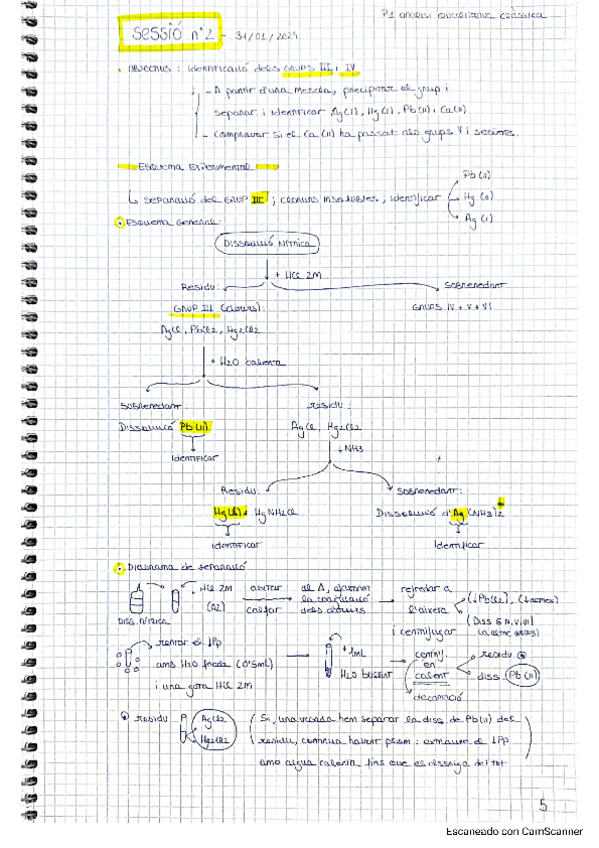 P1 anàlisi qualitativa clàssica
Sessió nº2 - 31/01/2024
• Objectius: Identificació dels Grups III i IV
- A partir d'una mescla, precipitar el grup i
separar i identificar Ag(I), Hg(I), Pb(II) i Ca(II).
- comprovar si el Ca(II) ha passat als grups V i següents.
Esquema Experimental
Pb(II)
↳ separació del Grup III; clorurs insolubles, identificar Hg(I)
Ag(I)
• Esquema General:
Dissolució Nítrica
+ HCl 2M
Residu: Sobrenedant:
GRUP III (clorurs): GRUPS IV + V + VI
AgCl, PbCl2, Hg2Cl2
+ H2O calenta
Sobrenedant: residu:
Dissolució Pb(II) AgCl, Hg2Cl2
Identificar + NH3
Residu: Sobrenedant:
HgNH2Cl Dissolució d'Ag(NH3)2+
Identificar Identificar
• Diagrama de separació
HCl 2M agitar refredar a (↓PbCl2),
escalfar dels clorurs l'aixeta (Diss G IV, V, VI)
Diss. nítrica i centrifugar
rentar el PP + 1mL centrif. residu
amb H2O freda (0'5mL) H2O bullent en calent diss. Pb(II)
i una gota HCl 2M decantació
residu AgCl2 (Si, una vegada hem separat la diss de Pb(II) del
Hg2Cl2 residu, continua havent plom: extraure el PP
amb aigua calenta fins que es dissolgui del tot
5
Escaneado con CamScanner